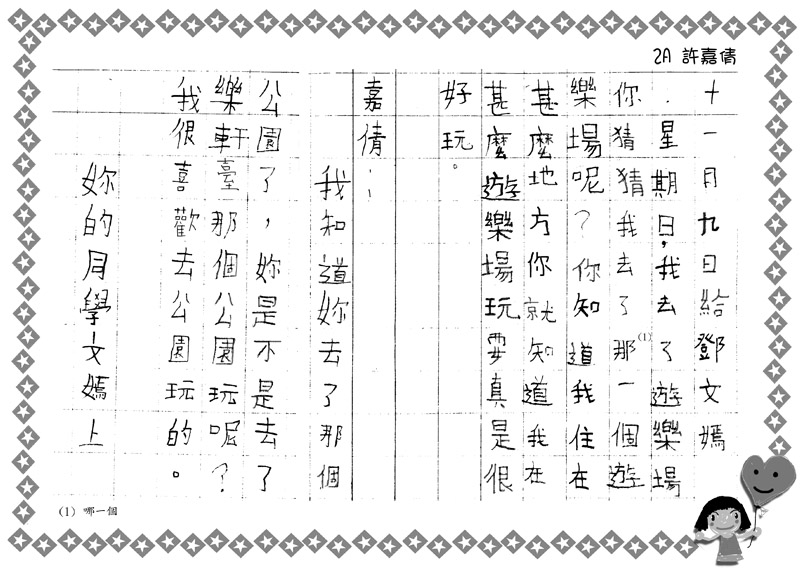 2A 許嘉倩
十一月九日給鄧文嫣
．星期日，我去了遊樂場
你猜猜我去了那(1)一個遊
樂場呢？你知道我住在
甚麼地方你就知道我在
甚麼遊樂場玩耍真是很
好玩。
嘉倩：
我知道妳去了那個
公園了，妳是不是去了
樂軒臺那個公園玩呢？
我很喜歡去公園玩的。
妳的同學文嫣上
(1) 哪一個